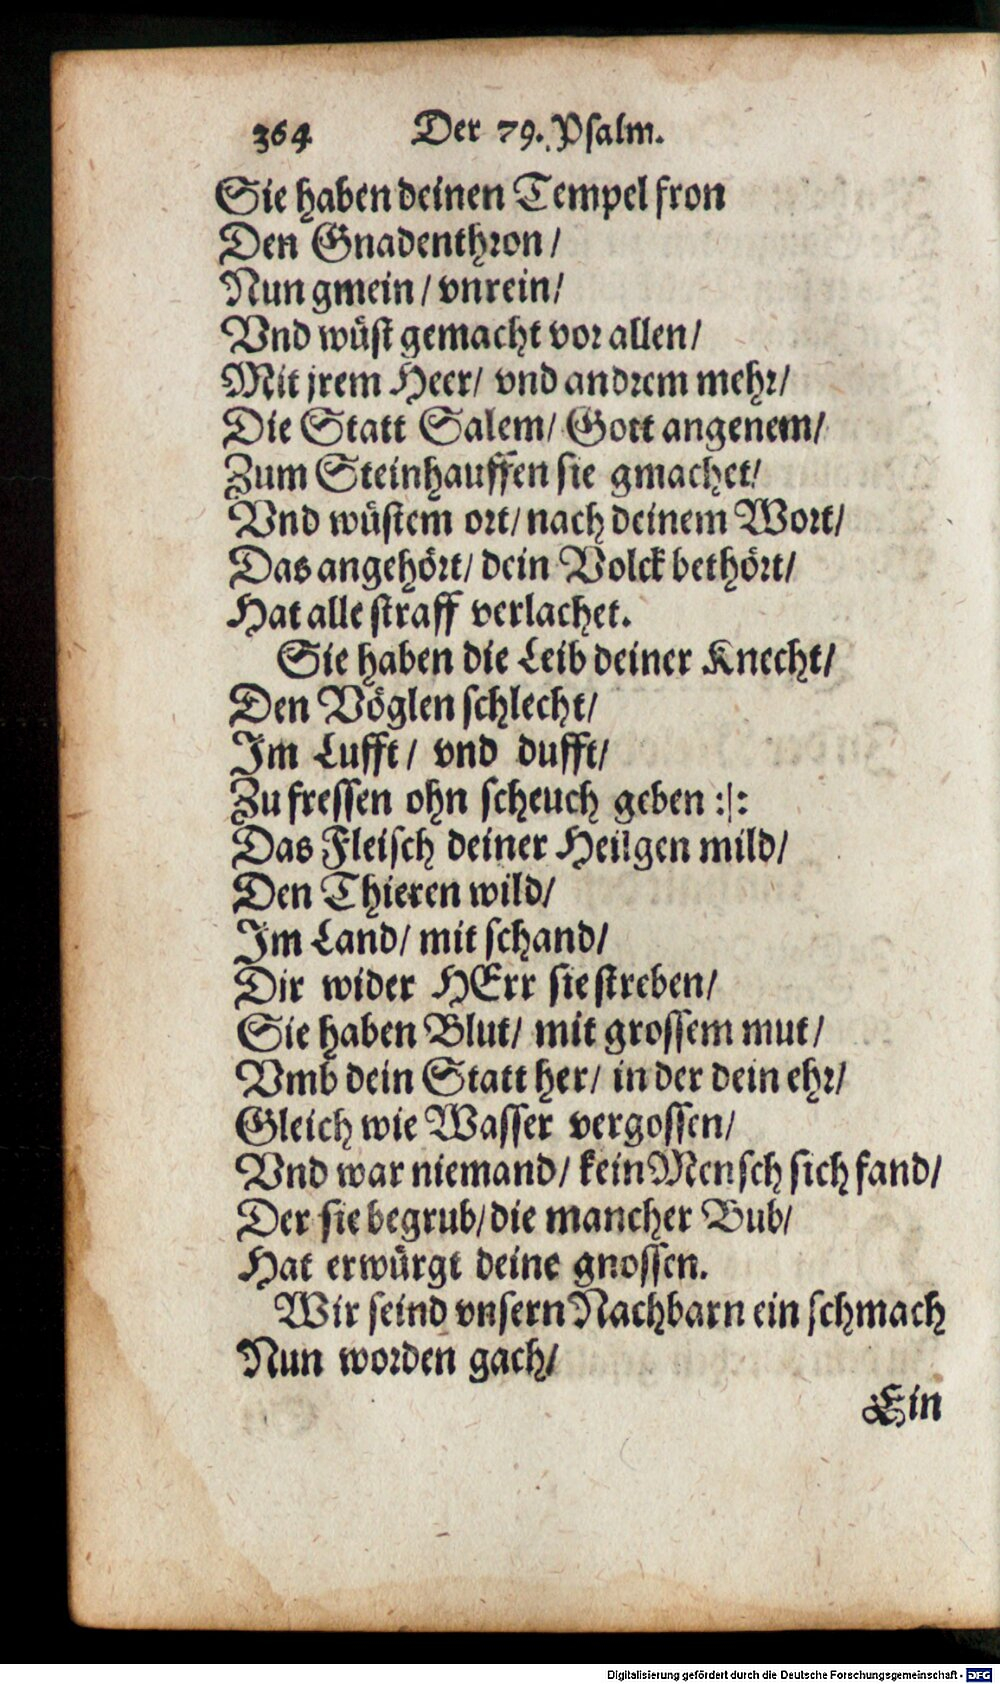 364 Der 79. Psalm.
Sie haben deinen Tempel fron
Den Gnadenthron/
Nun gmein/ vnrein/
Vnd wüst gemacht vor allen/
Mit jrem Heer/ vnd andrem mehr/
Die Statt Salem/ Gott angenem/
Zum Steinhauffen sie gmachet/
Vnd wüstem ort/ nach deinem Wort/
Das angehört/ dein Volck bethört/
Hat alle straff verlachet.
Sie haben die Leib deiner Knecht/
Den Vöglen schlecht/
Im Lufft/ vnd dufft/
Zu fressen ohn scheuch geben :|:
Das Fleisch deiner Heilgen mild/
Den Thieren wild/
Im Land/ mit schand/
Dir wider HErr sie streben/
Sie haben Blut/ mit grossem mut/
Vmb dein Statt her/ in der dein ehr/
Gleich wie Wasser vergossen/
Vnd war niemand/ kein Mensch sich fand/
Der sie begrub/ die mancher Bub/
Hat erwürgt deine gnossen.
Wir seind vnsern Nachbarn ein schmach
Nun worden gach/
Ein
Digitalisierung gefördert durch die Deutsche Forschungsgemeinschaft - DFG